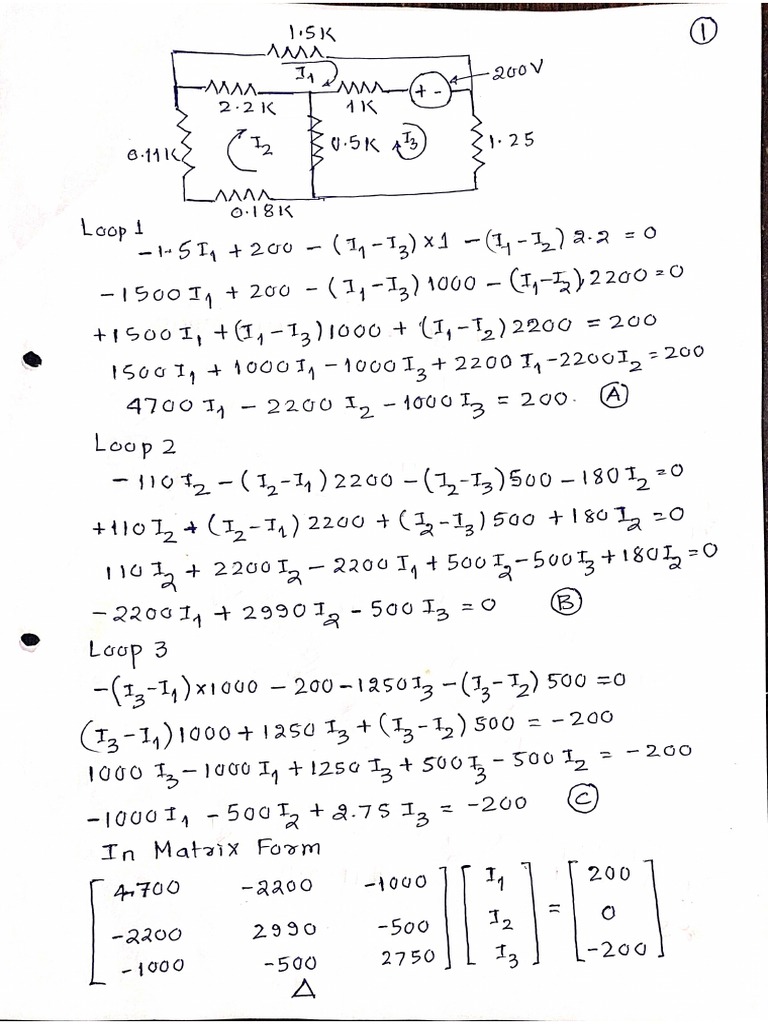 ①
1.5K
I₁
200V
+ -
2.2K
1K
0.11K
I₂
0.5K
I₃
1.25
0.18K
Loop 1
-1.5I₁ + 200 - (I₁-I₃)×1 - (I₁-I₂)2.2 = 0
-1500I₁ + 200 - (I₁-I₃)1000 - (I₁-I₂)2200=0
+1500I₁ + (I₁-I₃)1000 + (I₁-I₂)2200 = 200
1500I₁ + 1000I₁ - 1000I₃ + 2200I₁ - 2200I₂ = 200
4700I₁ - 2200I₂ - 1000I₃ = 200. Ⓐ
Loop 2
-110I₂ - (I₂-I₁)2200 - (I₂-I₃)500 - 180I₂=0
+110I₂ + (I₂-I₁)2200 + (I₂-I₃)500 + 180I₂=0
110I₂ + 2200I₂ - 2200I₁ + 500I₂ - 500I₃ + 180I₂=0
-2200I₁ + 2990I₂ - 500I₃ = 0 Ⓑ
Loop 3
-(I₃-I₁)×1000 - 200 - 1250I₃ - (I₃-I₂)500 =0
(I₃-I₁)1000 + 1250I₃ + (I₃-I₂)500 = -200
1000I₃ - 1000I₁ + 1250I₃ + 500I₃ - 500I₂ = -200
-1000I₁ - 500I₂ + 2.75I₃ = -200 Ⓒ
In Matrix Form
4700 -2200 -1000 I₁ 200
-2200 2990 -500 I₂ = 0
-1000 -500 2750 I₃ -200
Δ